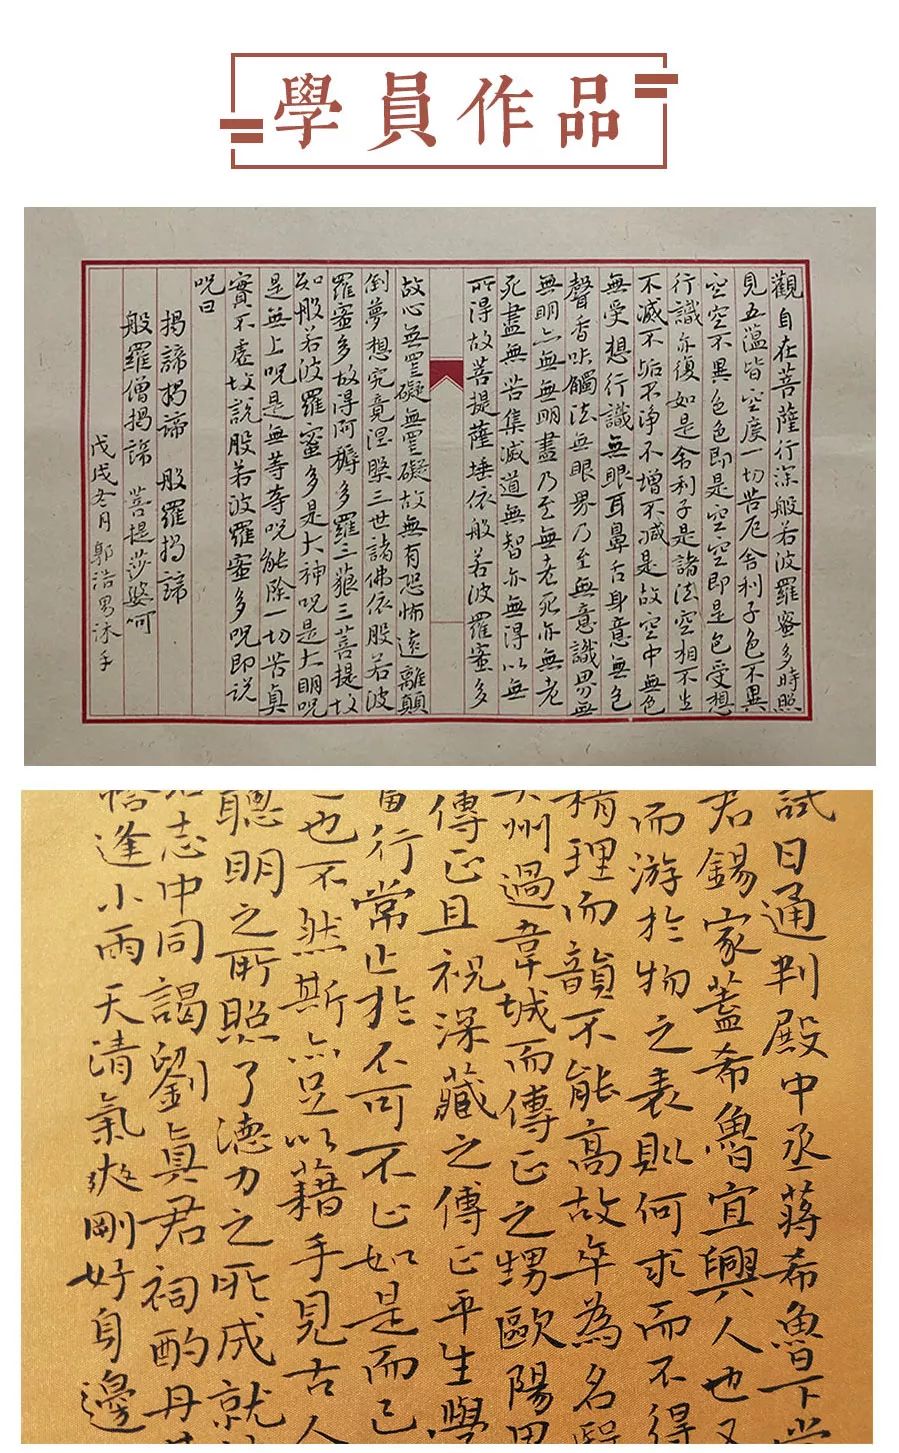 學員作品
觀自在菩薩行深般若波羅蜜多時照
見五蘊皆空度一切苦厄舍利子色不異
空空不異色色即是空空即是色受想
行識亦復如是舍利子是諸法空相不生
不滅不垢不淨不增不減是故空中無色
無受想行識無眼耳鼻舌身意無色
聲香味觸法無眼界乃至無意識界無
無明亦無無明盡乃至無老死亦無老
死盡無苦集滅道無智亦無得以無
所得故菩提薩埵依般若波羅蜜多
故心無罣礙無罣礙故無有恐怖遠離顛
倒夢想究竟涅槃三世諸佛依般若波
羅蜜多故得阿耨多羅三藐三菩提故
知般若波羅蜜多是大神咒是大明咒
是無上咒是無等等咒能除一切苦真
實不虛故說般若波羅蜜多咒即說
咒曰
揭諦揭諦 般羅揭諦
般羅僧揭諦 菩提莎婆呵
戊戌冬月郭浩男沐手
試日通判殿中丞蔣希魯下
君錫家蓋希魯宜興人也又
而游於物之表則何求而不得
精理而韻不能高故卒為名
州過韋城而傳正之甥歐陽
傳正且祝深藏之傳正平生學
當行常止於不可不止如是而已
也不然斯亦足以藉手見古人
聰明之所照了德力之所成就
志中同謁劉真君祠酌丹
逢小雨天清氣爽剛好自邊